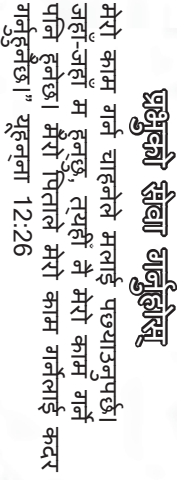 प्रभुको सेवा गर्नुहोस्
मेरो काम गर्न चाहनेले मलाई पछ्याउनुपर्छ।
जहाँ-जहाँ म हुनेछु, त्यहीं नै मेरो काम गर्ने
पनि हुनेछ। मेरो पिताले मेरो काम गर्नेलाई कदर
गर्नुहुनेछ।” यूहन्ना 12:26